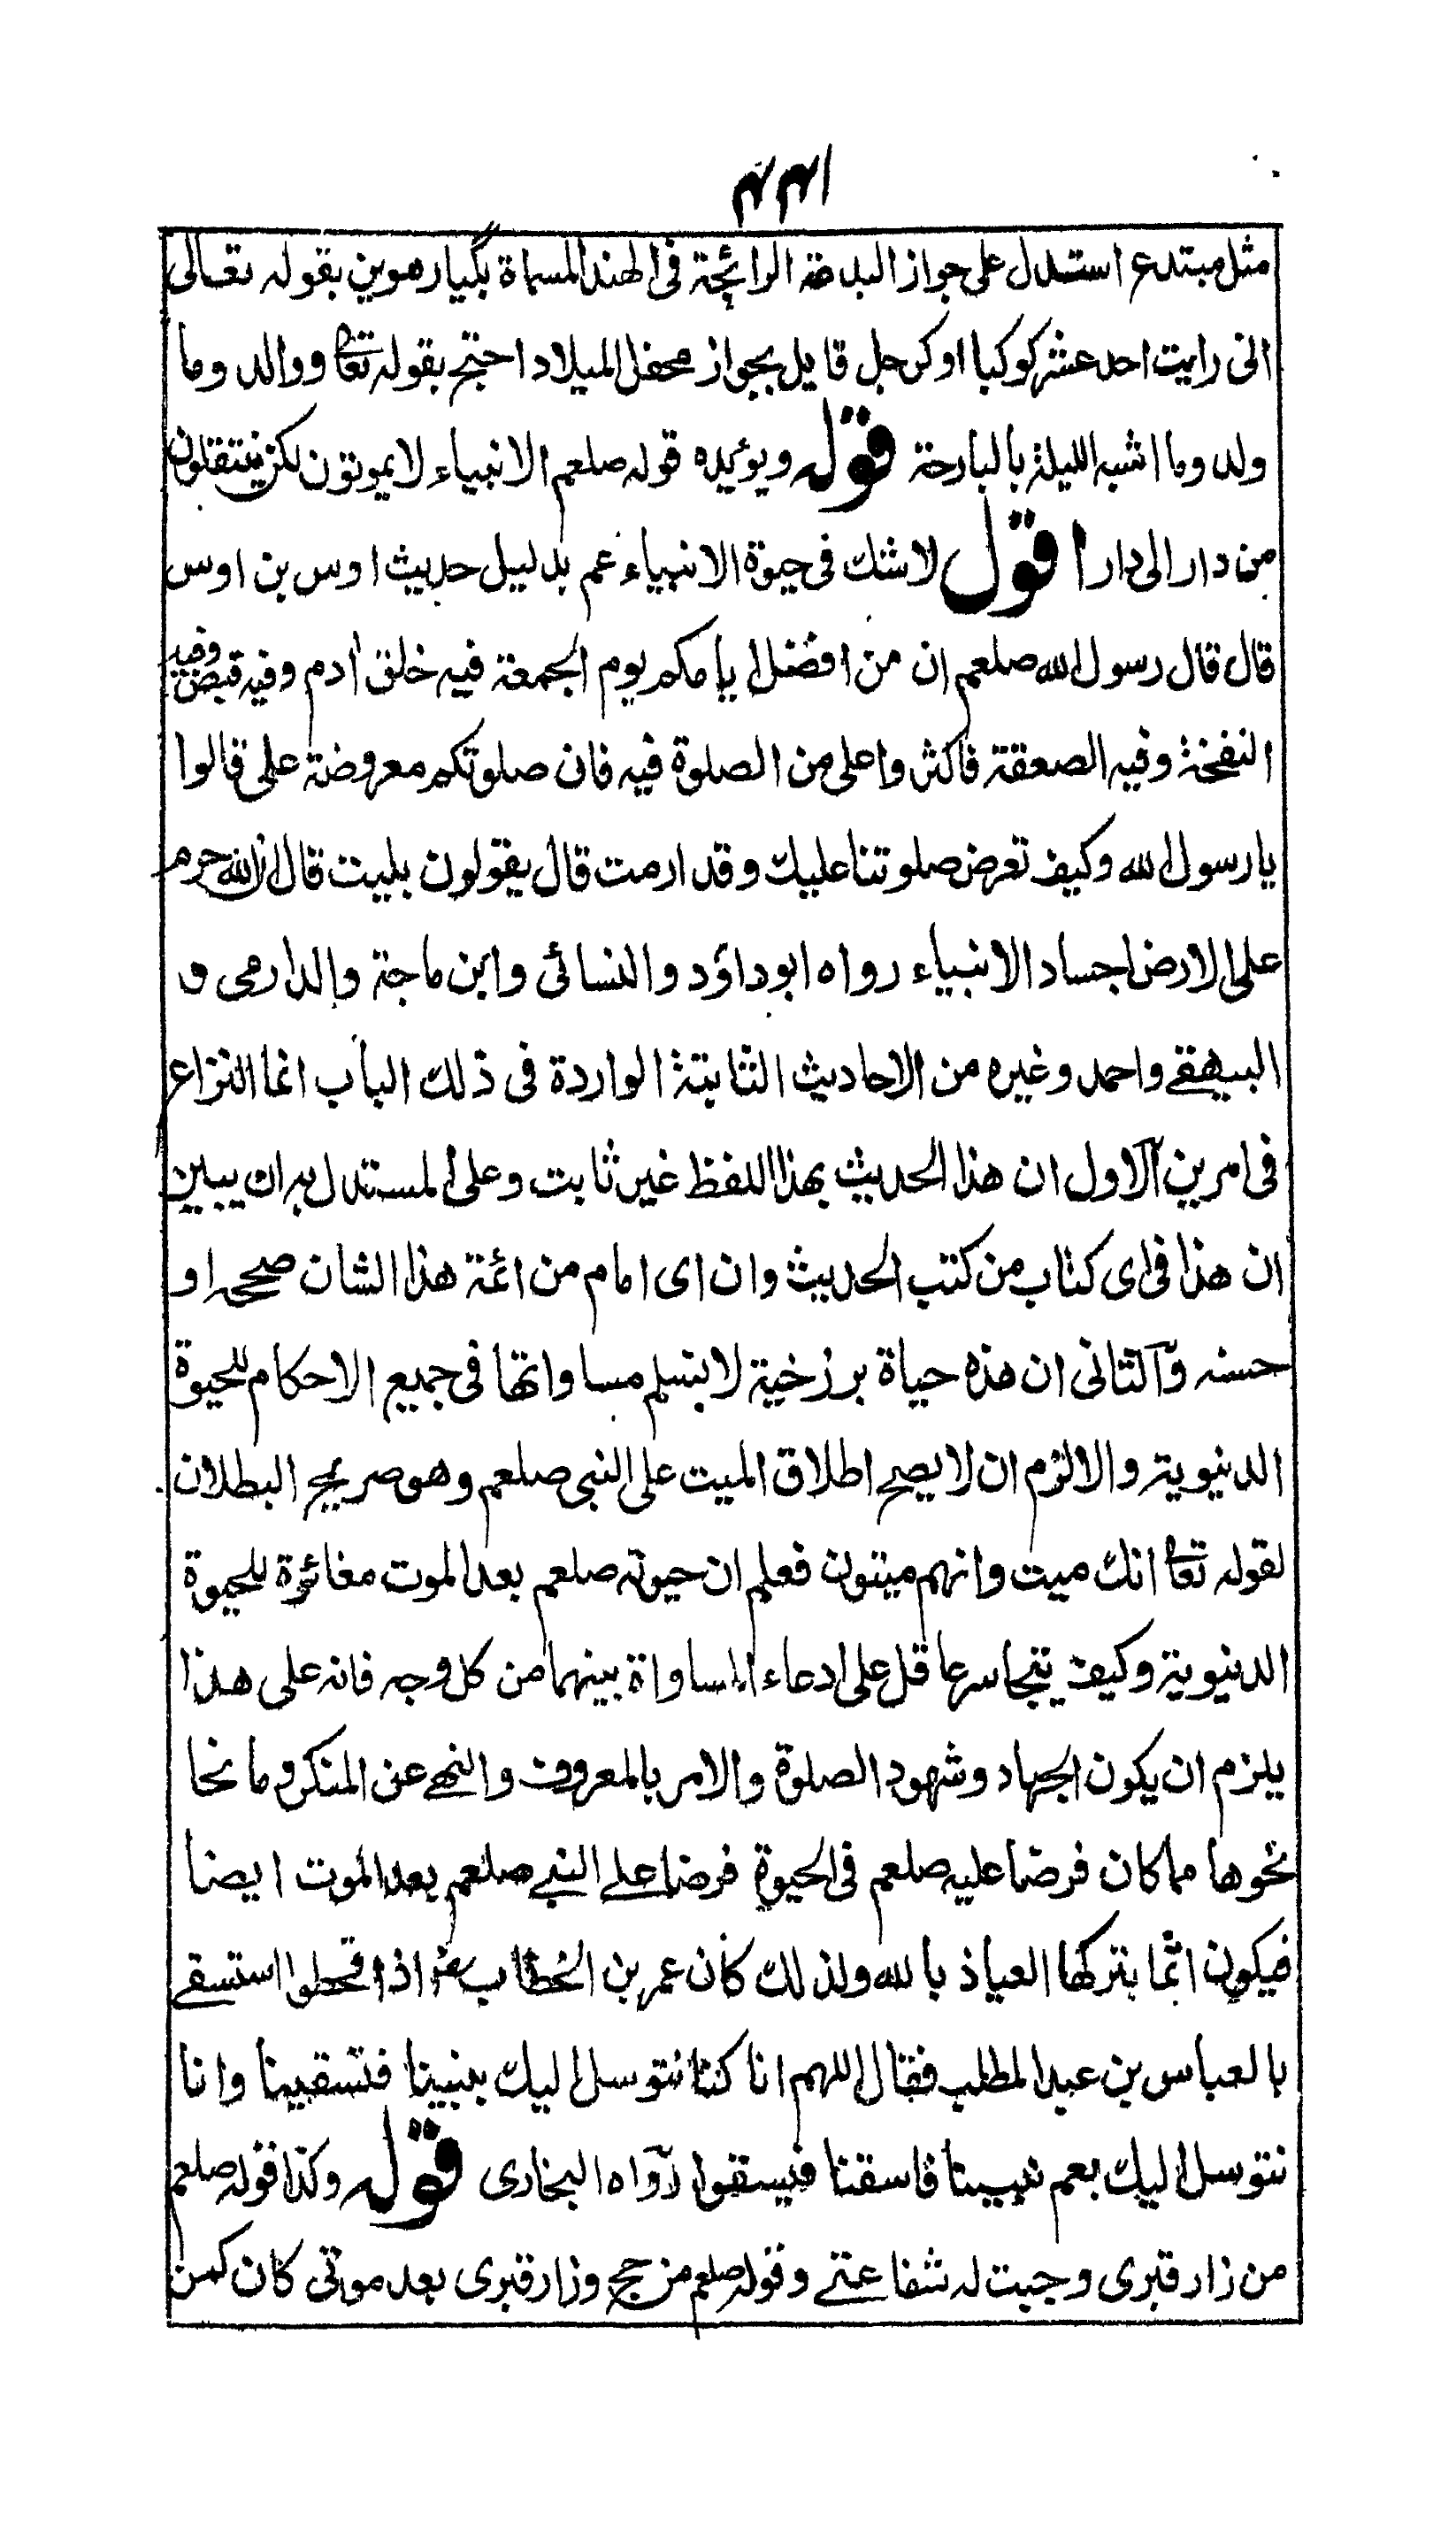 ۱۴۴
مثل مبتدع استدل على جواز البدعة الرائجة فى الهند المسماة بگيارهوين بقوله تعالى
انى رايت احد عشر كوكبا اوكرجل قايل بجواز محفل الميلاد احتج بقوله تعالى ووالد وما
ولد وما اشبه الليلة بالبارحة قوله ويوئيده قوله صلعم الانبياء لايموتون لكن ينتقلون
من دار الى دار اقول لاشك فى حيوة الانبياء عم بدليل حديث اوس بن اوس
قال قال رسول الله صلعم ان من افضل ايامكم يوم الجمعة فيه خلق ادم وفيه قبض وفيه
النفخة وفيه الصعقة فاكثروا على من الصلوة فيه فان صلوتكم معروضة على قالوا
يا رسول الله وكيف تعرض صلوتنا عليك وقد ارمت قال يقولون بليت قال ان الله حرم
على الارض اجساد الانبياء رواه ابو داؤد والنسائى وابن ماجة والدارمى و
البيهقے واحمد وغيره من الاحاديث الثابتة الواردة فى ذلك الباب انما النزاع
فى امرين آلاول ان هذا الحديث بهذا اللفظ غير ثابت وعلى المستدل به ان يبين
ان هذا فى اى كتاب من كتب الحديث وان اى امام من ائمة هذا الشان صححه او
حسنه وآلثانى ان هذه حياة برزخية لا يتسلم مساواتها فى جميع الاحكام للحيوة
الدنيوية والا لزم ان لا يصح اطلاق الميت على النبى صلعم وهو صريح البطلان
لقوله تعالى انك ميت وانهم ميتون فعلم ان حيوته صلعم بعد الموت مغائرة للحيوة
الدنيوية وكيف يتجاسر عاقل على ادعاء المساواة بينهما من كل وجه فانه على هذا
يلزم ان يكون الجهاد وشهود الصلوة والامر بالمعروف والنهے عن المنكر وما نحا
نحوها مما كان فرضا عليه صلعم فى الحيوة فرضا علے النبے صلعم بعد الموت ايضا
فيكون اثما بتركها العياذ بالله ولذلك كان عمر بن الخطاب رض اذا قحطوا استسقے
بالعباس بن عبد المطلب فقال اللهم انا كنا نتوسل اليك بنبينا فتسقينا وانا
نتوسل اليك بعم نبينا فاسقنا فيسقوا رواه البخارى قوله وكذا قوله صلعم
من زار قبرى وجبت له شفاعتے وقوله صلعم من حج وزار قبرى بعد موتى كان كمن